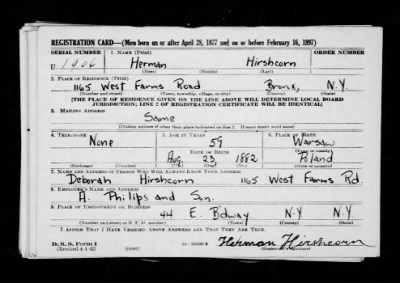 REGISTRATION CARD—(Men born on or after April 28, 1877 and on or before February 16, 1897)
SERIAL NUMBER 1. NAME (Print) ORDER NUMBER
U 1906 Herman Hirshcorn
(First) (Middle) (Last)
2. PLACE OF RESIDENCE (Print)
1165 West Farms Road Bronx, N.Y.
(Number and street) (Town, township, village, or city) (County) (State)
[THE PLACE OF RESIDENCE GIVEN ON THE LINE ABOVE WILL DETERMINE LOCAL BOARD
JURISDICTION; LINE 2 OF REGISTRATION CERTIFICATE WILL BE IDENTICAL]
3. MAILING ADDRESS
Same
[Mailing address if other than place indicated on line 2. If same insert word same]
4. TELEPHONE 5. AGE IN YEARS 6. PLACE OF BIRTH
None 59 Warsaw
DATE OF BIRTH (Town or county)
Aug. 23 1882 Poland
(Exchange) (Number) (Mo.) (Day) (Yr.) (State or country)
7. NAME AND ADDRESS OF PERSON WHO WILL ALWAYS KNOW YOUR ADDRESS
Deborah Hirshcorn 1165 West Farms Rd
8. EMPLOYER'S NAME AND ADDRESS
A. Philips and Son.
9. PLACE OF EMPLOYMENT OR BUSINESS
44 E. B'dway N.Y N.Y
(Number and street or R. F. D. number) (Town) (County) (State)
I AFFIRM THAT I HAVE VERIFIED ABOVE ANSWERS AND THAT THEY ARE TRUE.
D. S. S. Form 1
(Revised 4-1-42) (over) Herman Hirshcorn
(Registrant's signature)